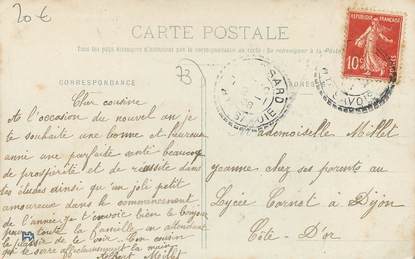 20€
CARTE POSTALE
Tous les pays étrangers n'admettent pas la correspondance au recto
CORRESPONDANCE
73
REPUBLIQUE FRANCAISE
10c
POSTES
SAVOIE
Cher cousine
A l'occasion du nouvel an je
te souhaite une bonne et heureuse
anné une parfaite santé beaucoup
de prospérité et de réussite dans
tes études ainsi qu'un joli petit
amoureux dans le commencement
de l'année Je t'envoie bien le bonjour
pour toute la famille en attendant
le plaisir de te voir Ton cousin
qui te serre affectueusement la main
Albert Millet
Mademoiselle Millet
Jeanne chez ses parents au
Lycée Carnot à Dijon
Côte-D'or